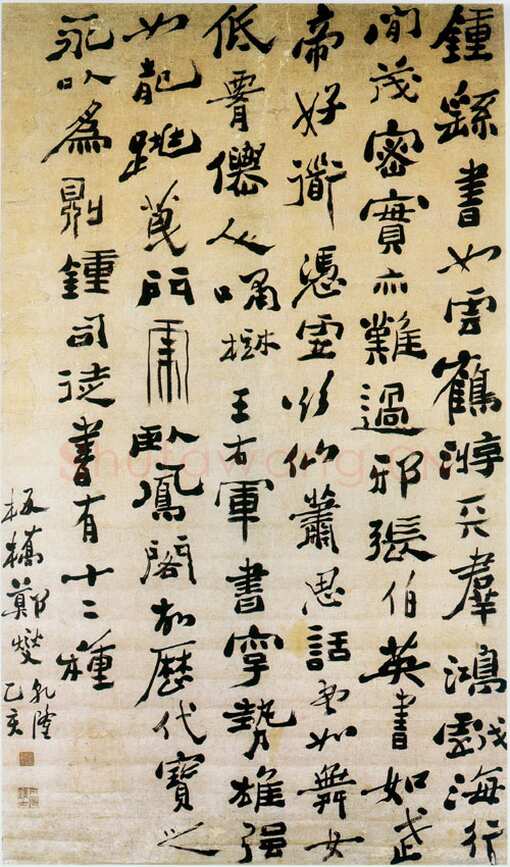 鍾繇書如雲鶴游天羣鴻戲海行
間茂密實亦難過邪張伯英書如武
帝好道憑虛欲仙蕭思話書如舞女
低腰僊人嘯樹王右軍書字勢雄强
如龍跳門虎臥鳳閣故歷代寶之
永以為則鍾司徒書有十二種
板橋鄭燮
乾隆
乙亥
Shufawang.CN